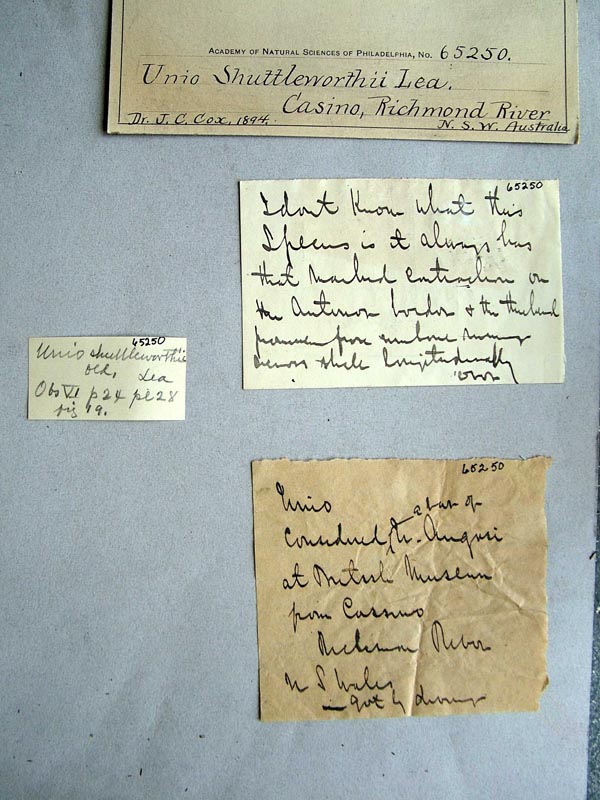 ACADEMY OF NATURAL SCIENCES OF PHILADELPHIA, NO. 65250.
Unio Shuttleworthii Lea.
Casino, Richmond River
Dr. J. C. Cox, 1894. N. S. W. Australia
65250
I dont know what this
Specus is it always has
that marked contraction on
the Anterior border & the
from umbone
across shell longitudinally
65250
Unio shuttleworthii
old, Lea
Obs VI p24 pl28
fig 19.
65250
Unio a var of
Considered U. Angasi
at British Museum
from Cassino
River
N S Wales
got by diving